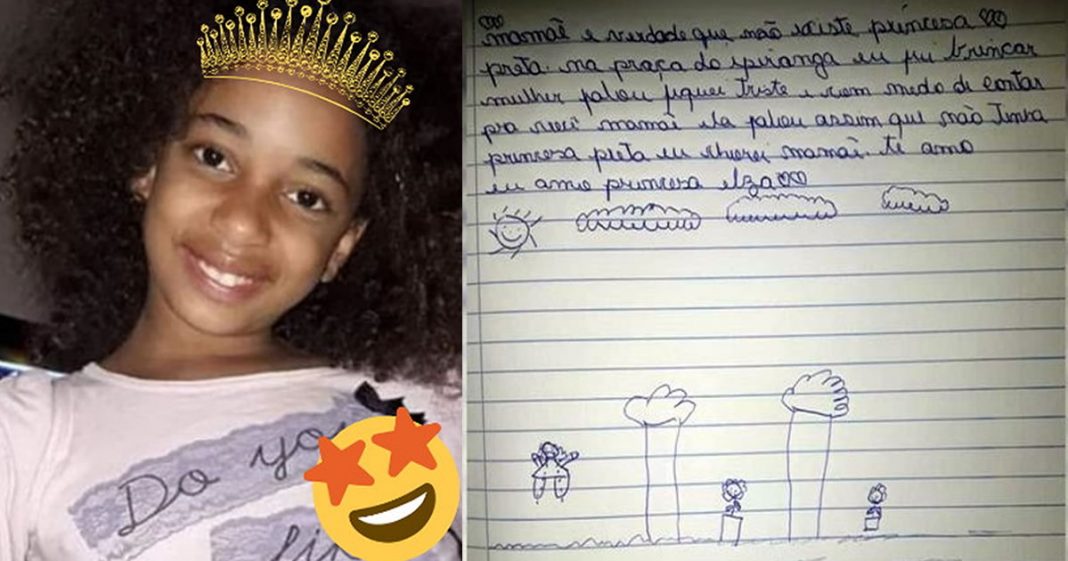 Do
mamãe e verdade que não existe princesa
preta na praça do ipiranga eu fui brincar
mulher falou fiquei triste e com medo di contar
pra você mamãe ela falou assim que não Tinha
princesa preta eu chorei mamãe te amo
eu amo princesa elza